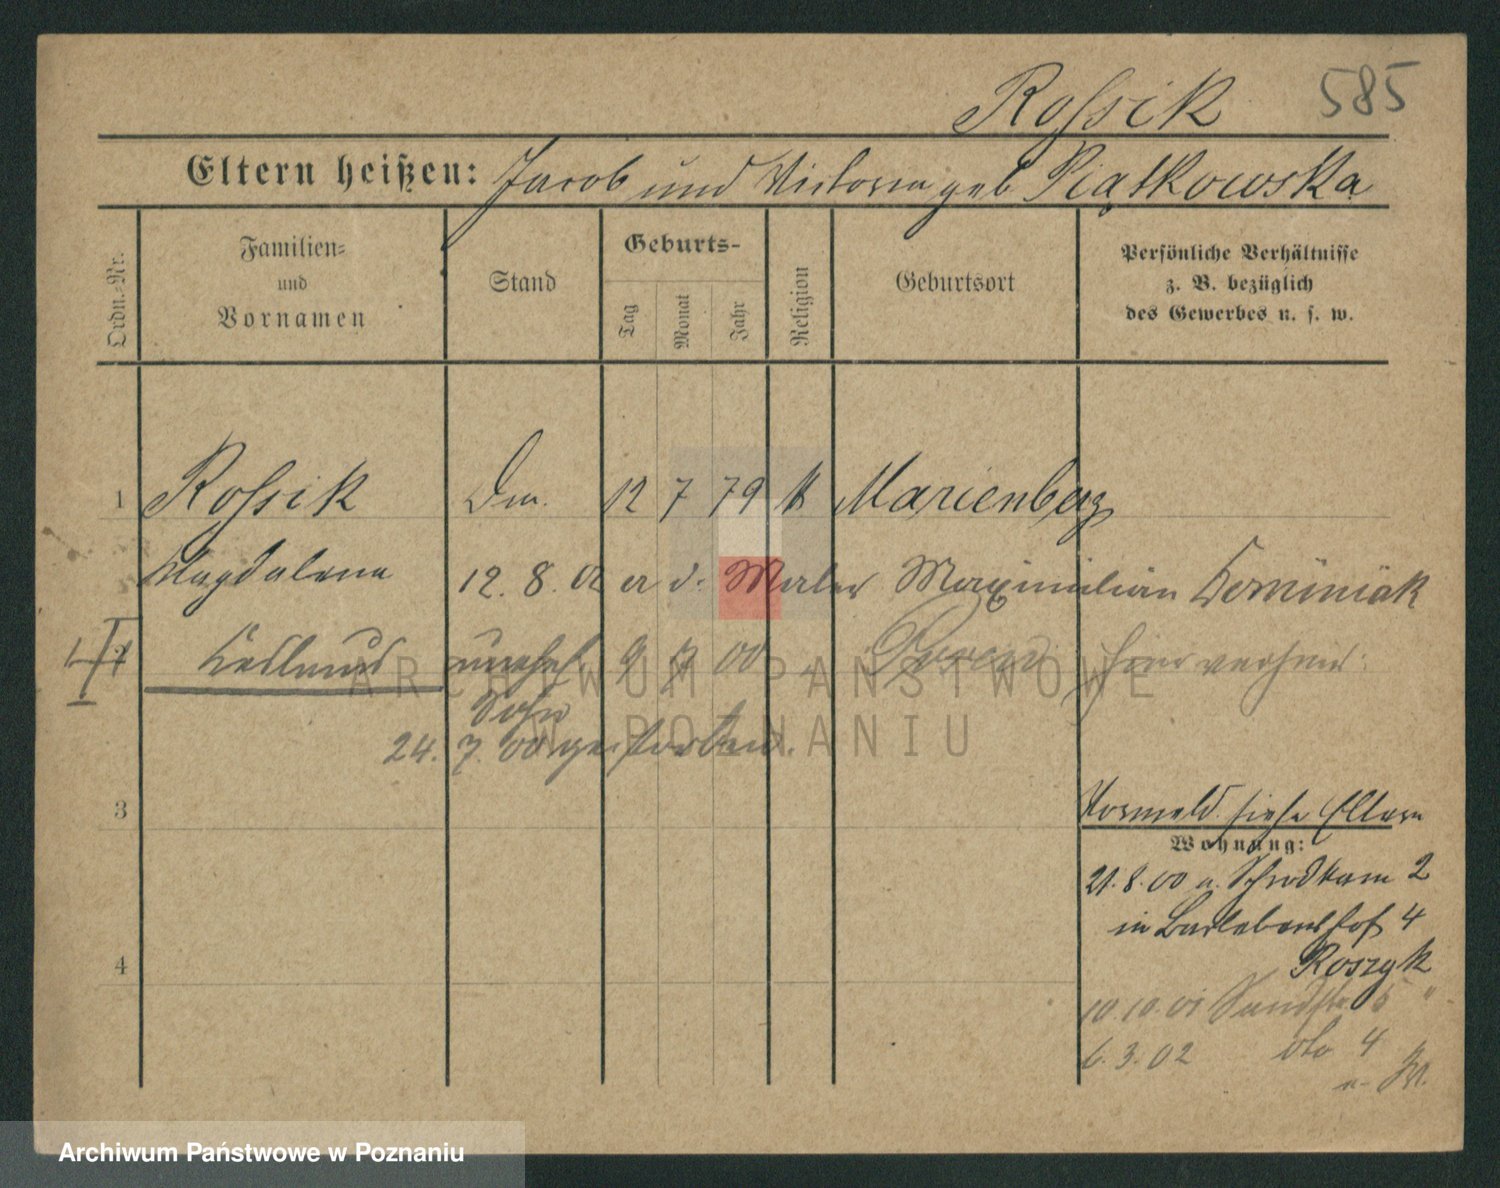 Rossik 585
Eltern heißen: Jacob und Victoria geb Piątkowska
Ordn.-Nr.
Familien-
und
Vornamen
Stand
Geburts-
Tag
Monat
Jahr
Religion
Geburtsort
Persönliche Verhältnisse
z. B. bezüglich
des Gewerbes u. s. w.
1 Rossik 12 7 79 k Marienberg
Magdalena 12. 8. 02 d. Maler Maximilian Dominiak
2 unehel 9 7 00 Posen
Sohn
24. 7. 00 gestorben.
3
Vormeld. siehe Eltern
Wohnung:
21. 8. 00 2
in 4
4
Roszyk
10. 10. 01 Sandstr. 5 "
6. 3. 02 4
ARCHIWUM PAŃSTWOWE
W POZNANIU
Archiwum Państwowe w Poznaniu